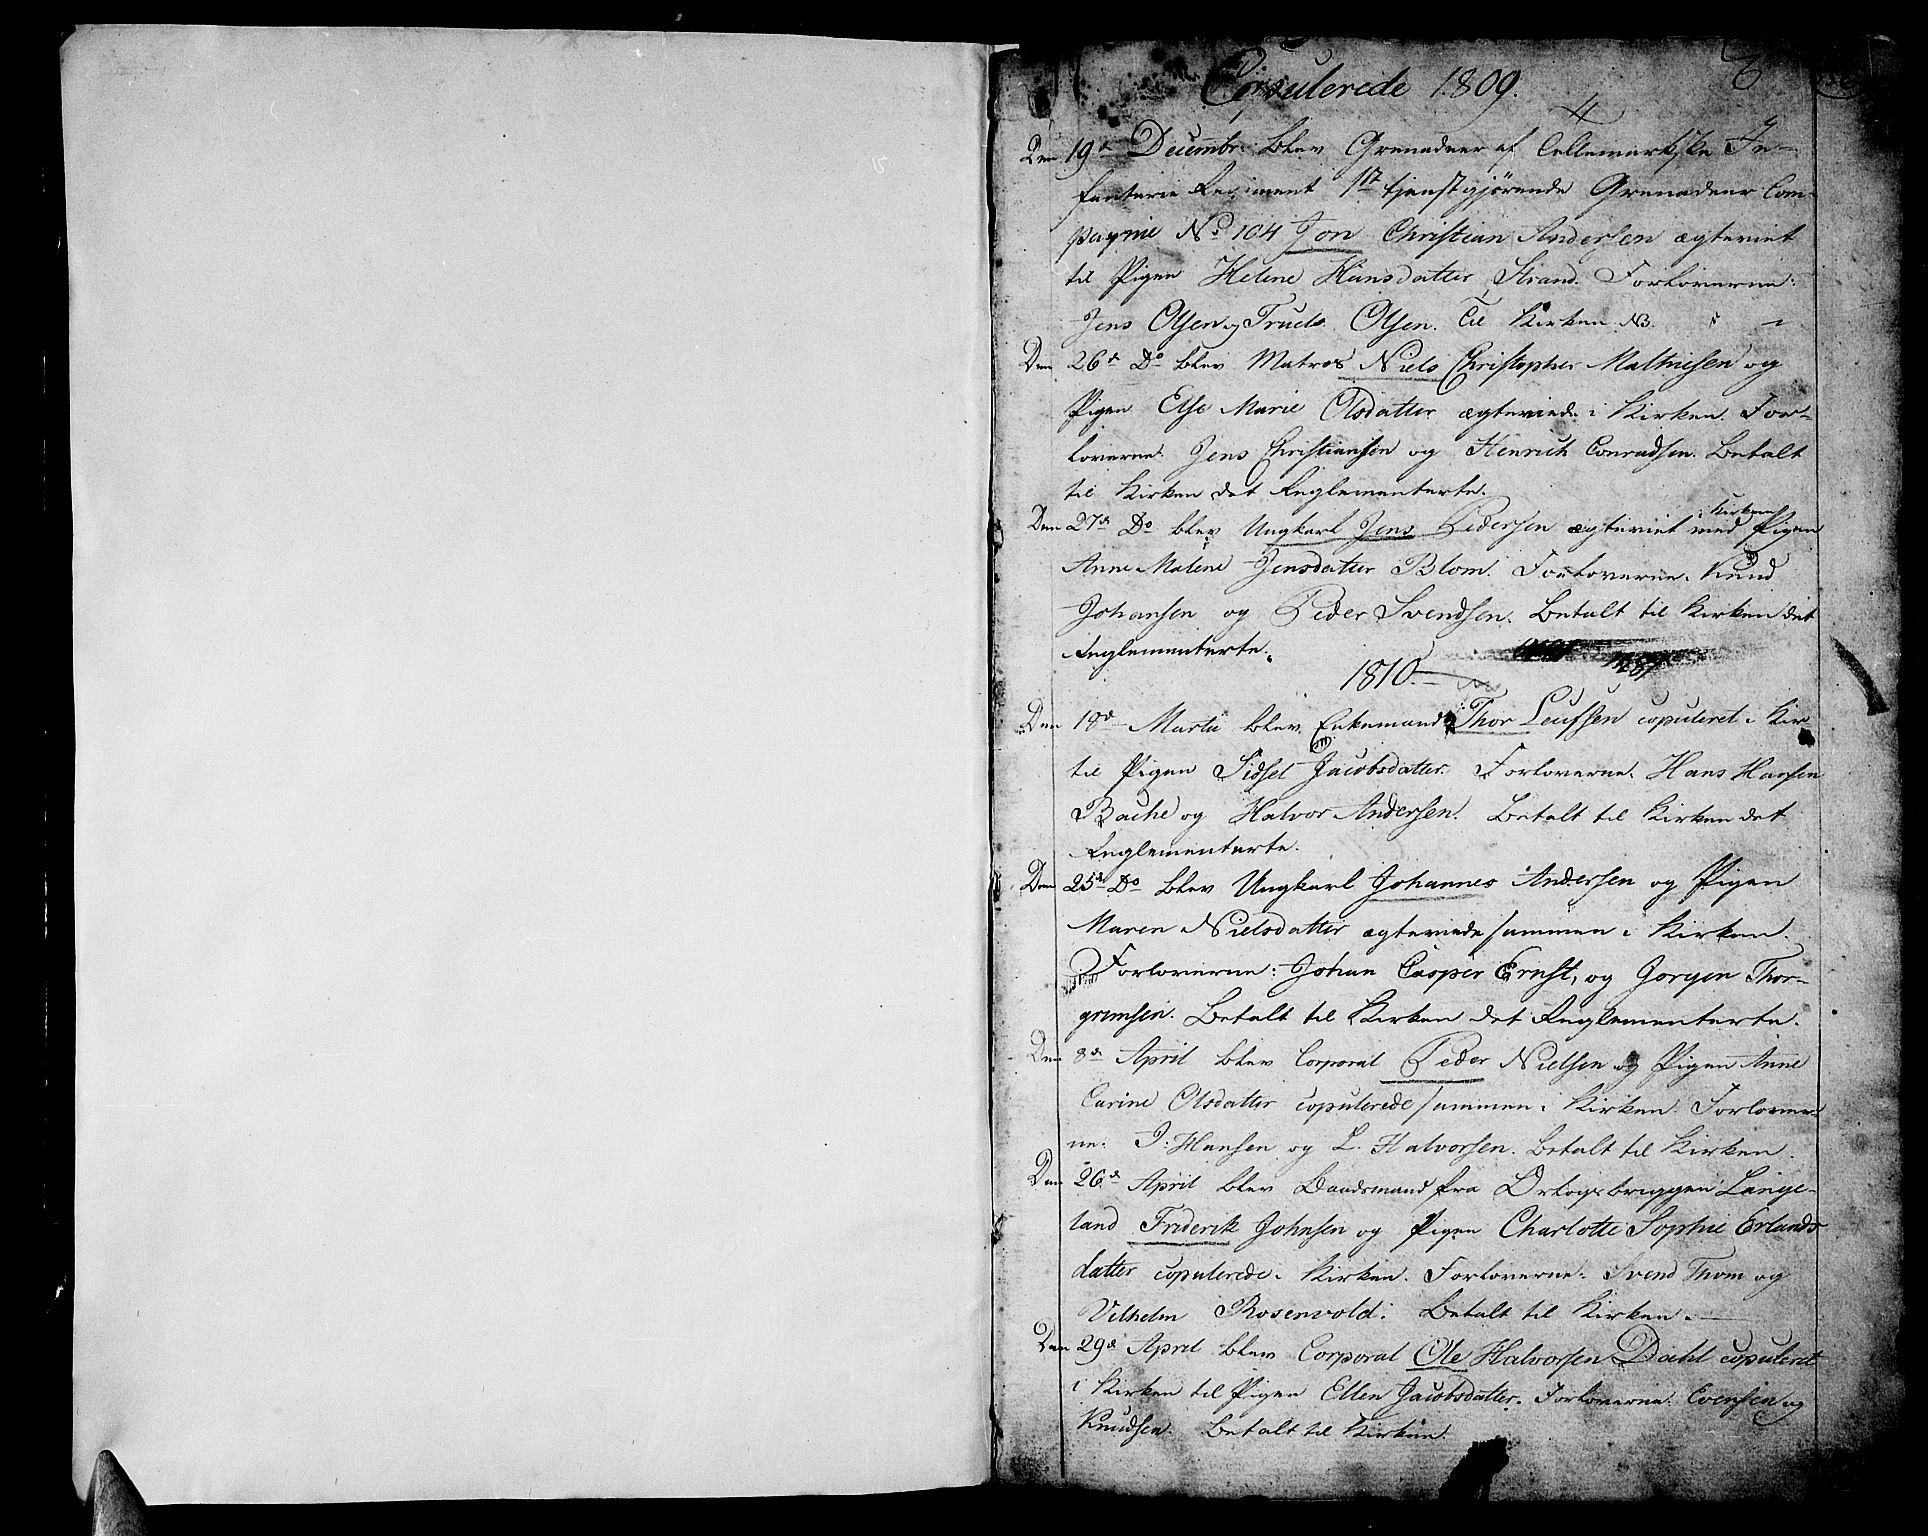 Copulerede 1809.
4
Den 19de Decembr. blev Grenadeer af Tellemarkske In-
fanterie Regiment 1te tjenstgjørende Grenadeer Com-
pagnie No 104 Jon Christian Andersen ægteviet
til Pigen Helene Hansdatter Strand. Forloverne:
Jens Olsen og Truels Olsen. Til Kirken NB.
Den 26de Do blev Matros Niels Christopher Mathiesen og
Pigen Else Marie Olsdatter ægteviede i Kirken. For-
loverne. Jens Christiansen og Henrich Conradsen. Betalt
til Kirken det Reglementerte.
Den 27de Do blev Ungkarl Jens Pedersen ægteviet i Kirken med Pigen
Anne Malene Jensdatter Blom. Forloverne. Knud
Johansen og Peder Svendsen. Betalt til Kirken det
Reglementerte.
1810.
Den 18de Martii blev Enkemand Thor Leufsen copuleret i Kir-
til Pigen Sidsel Jacobsdatter. Forloverne. Hans Hansen
Bache og Halvor Andersen. Betalt til Kirken det
Reglementerte.
Den 25de Do blev Ungkarl Johannes Andersen og Pigen
Maren Nielsdatter ægteviede sammen i Kirken.
Forloverne: Johan Casper Ernst, og Jørgen Thor-
gremsen. Betalt til Kirken det Reglementerte.
Den 8de April blev Corporal Peder Nielsen og Pigen Anne
Carine Olsdatter copulerede sammen i Kirken. Forlover-
ne. J. Hansen og L. Halvorsen. Betalt til Kirken.
Den 26de April blev Baadsmand fra Orlogsbriggen Lange-
land Friderik Johnsen og Pigen Charlotte Sophie Erlands
datter copulerede i Kirken. Forloverne. Svend Thom og
Vilhelm Rosenvold. Betalt til Kirken.
Den 29de April blev Corporal Ole Halvorsen Dahl copuleret
i Kirken til Pigen Ellen Jacobsdatter. Forloverne. Evensen og
Knudsen. Betalt til Kirken.